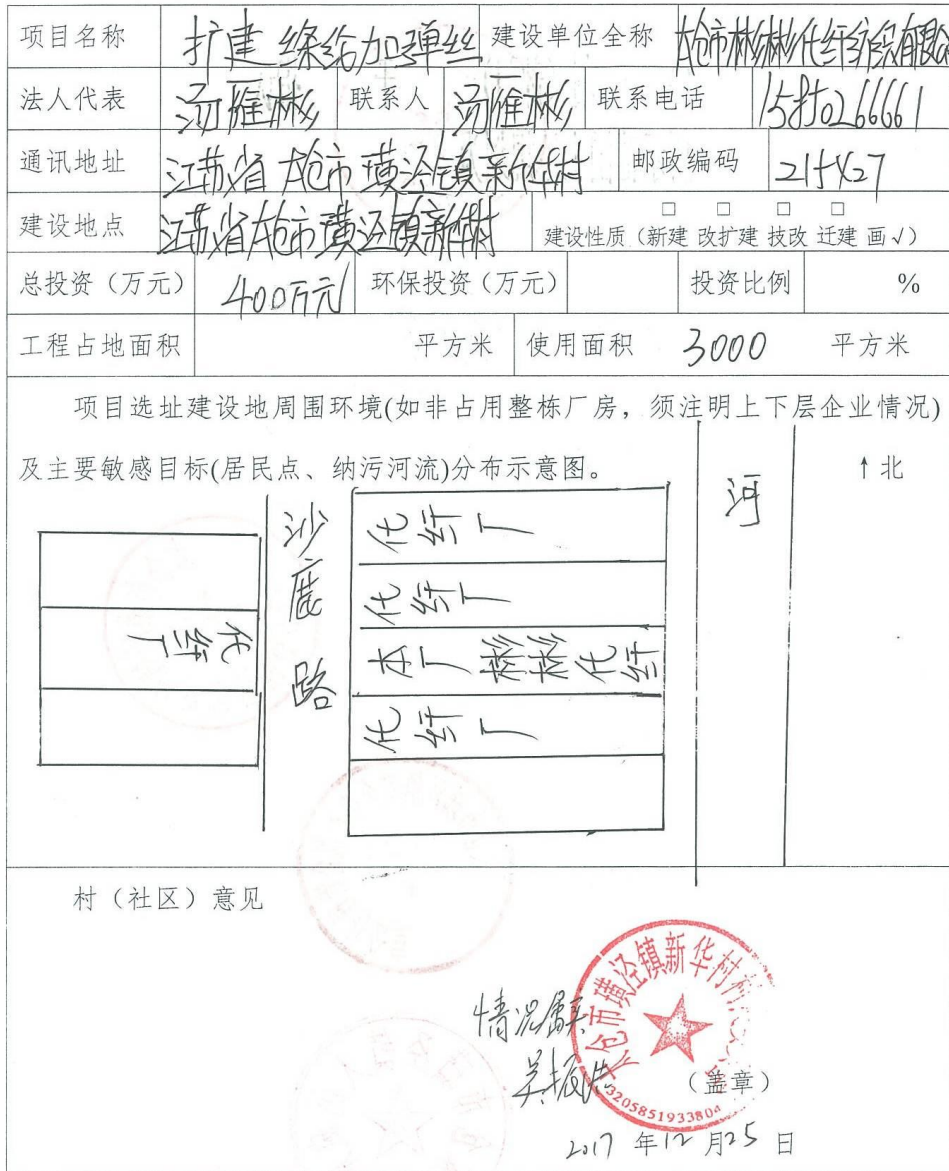 项目名称 扩建 涤纶加弹丝 建设单位全称 太仓市彬彬化纤纺织有限公
法人代表 汤雁彬 联系人 汤雁彬 联系电话 15850266661
通讯地址 江苏省太仓市璜泾镇新华村 邮政编码 215427
建设地点 江苏省太仓市璜泾镇新华村 □ □ □ □
建设性质（新建 改扩建 技改 迁建 画√）
总投资（万元） 400万元 环保投资（万元） 投资比例 %
工程占地面积 平方米 使用面积 3000 平方米
项目选址建设地周围环境(如非占用整栋厂房，须注明上下层企业情况)
及主要敏感目标(居民点、纳污河流)分布示意图。
↑北
河
沙鹿路
化纤厂
化纤厂
化纤厂
本厂彬彬化纤
化纤厂
村（社区）意见
情况属实
太仓市璜泾镇新华村村
3205851933804
（盖章）
2017 年 12 月 25 日